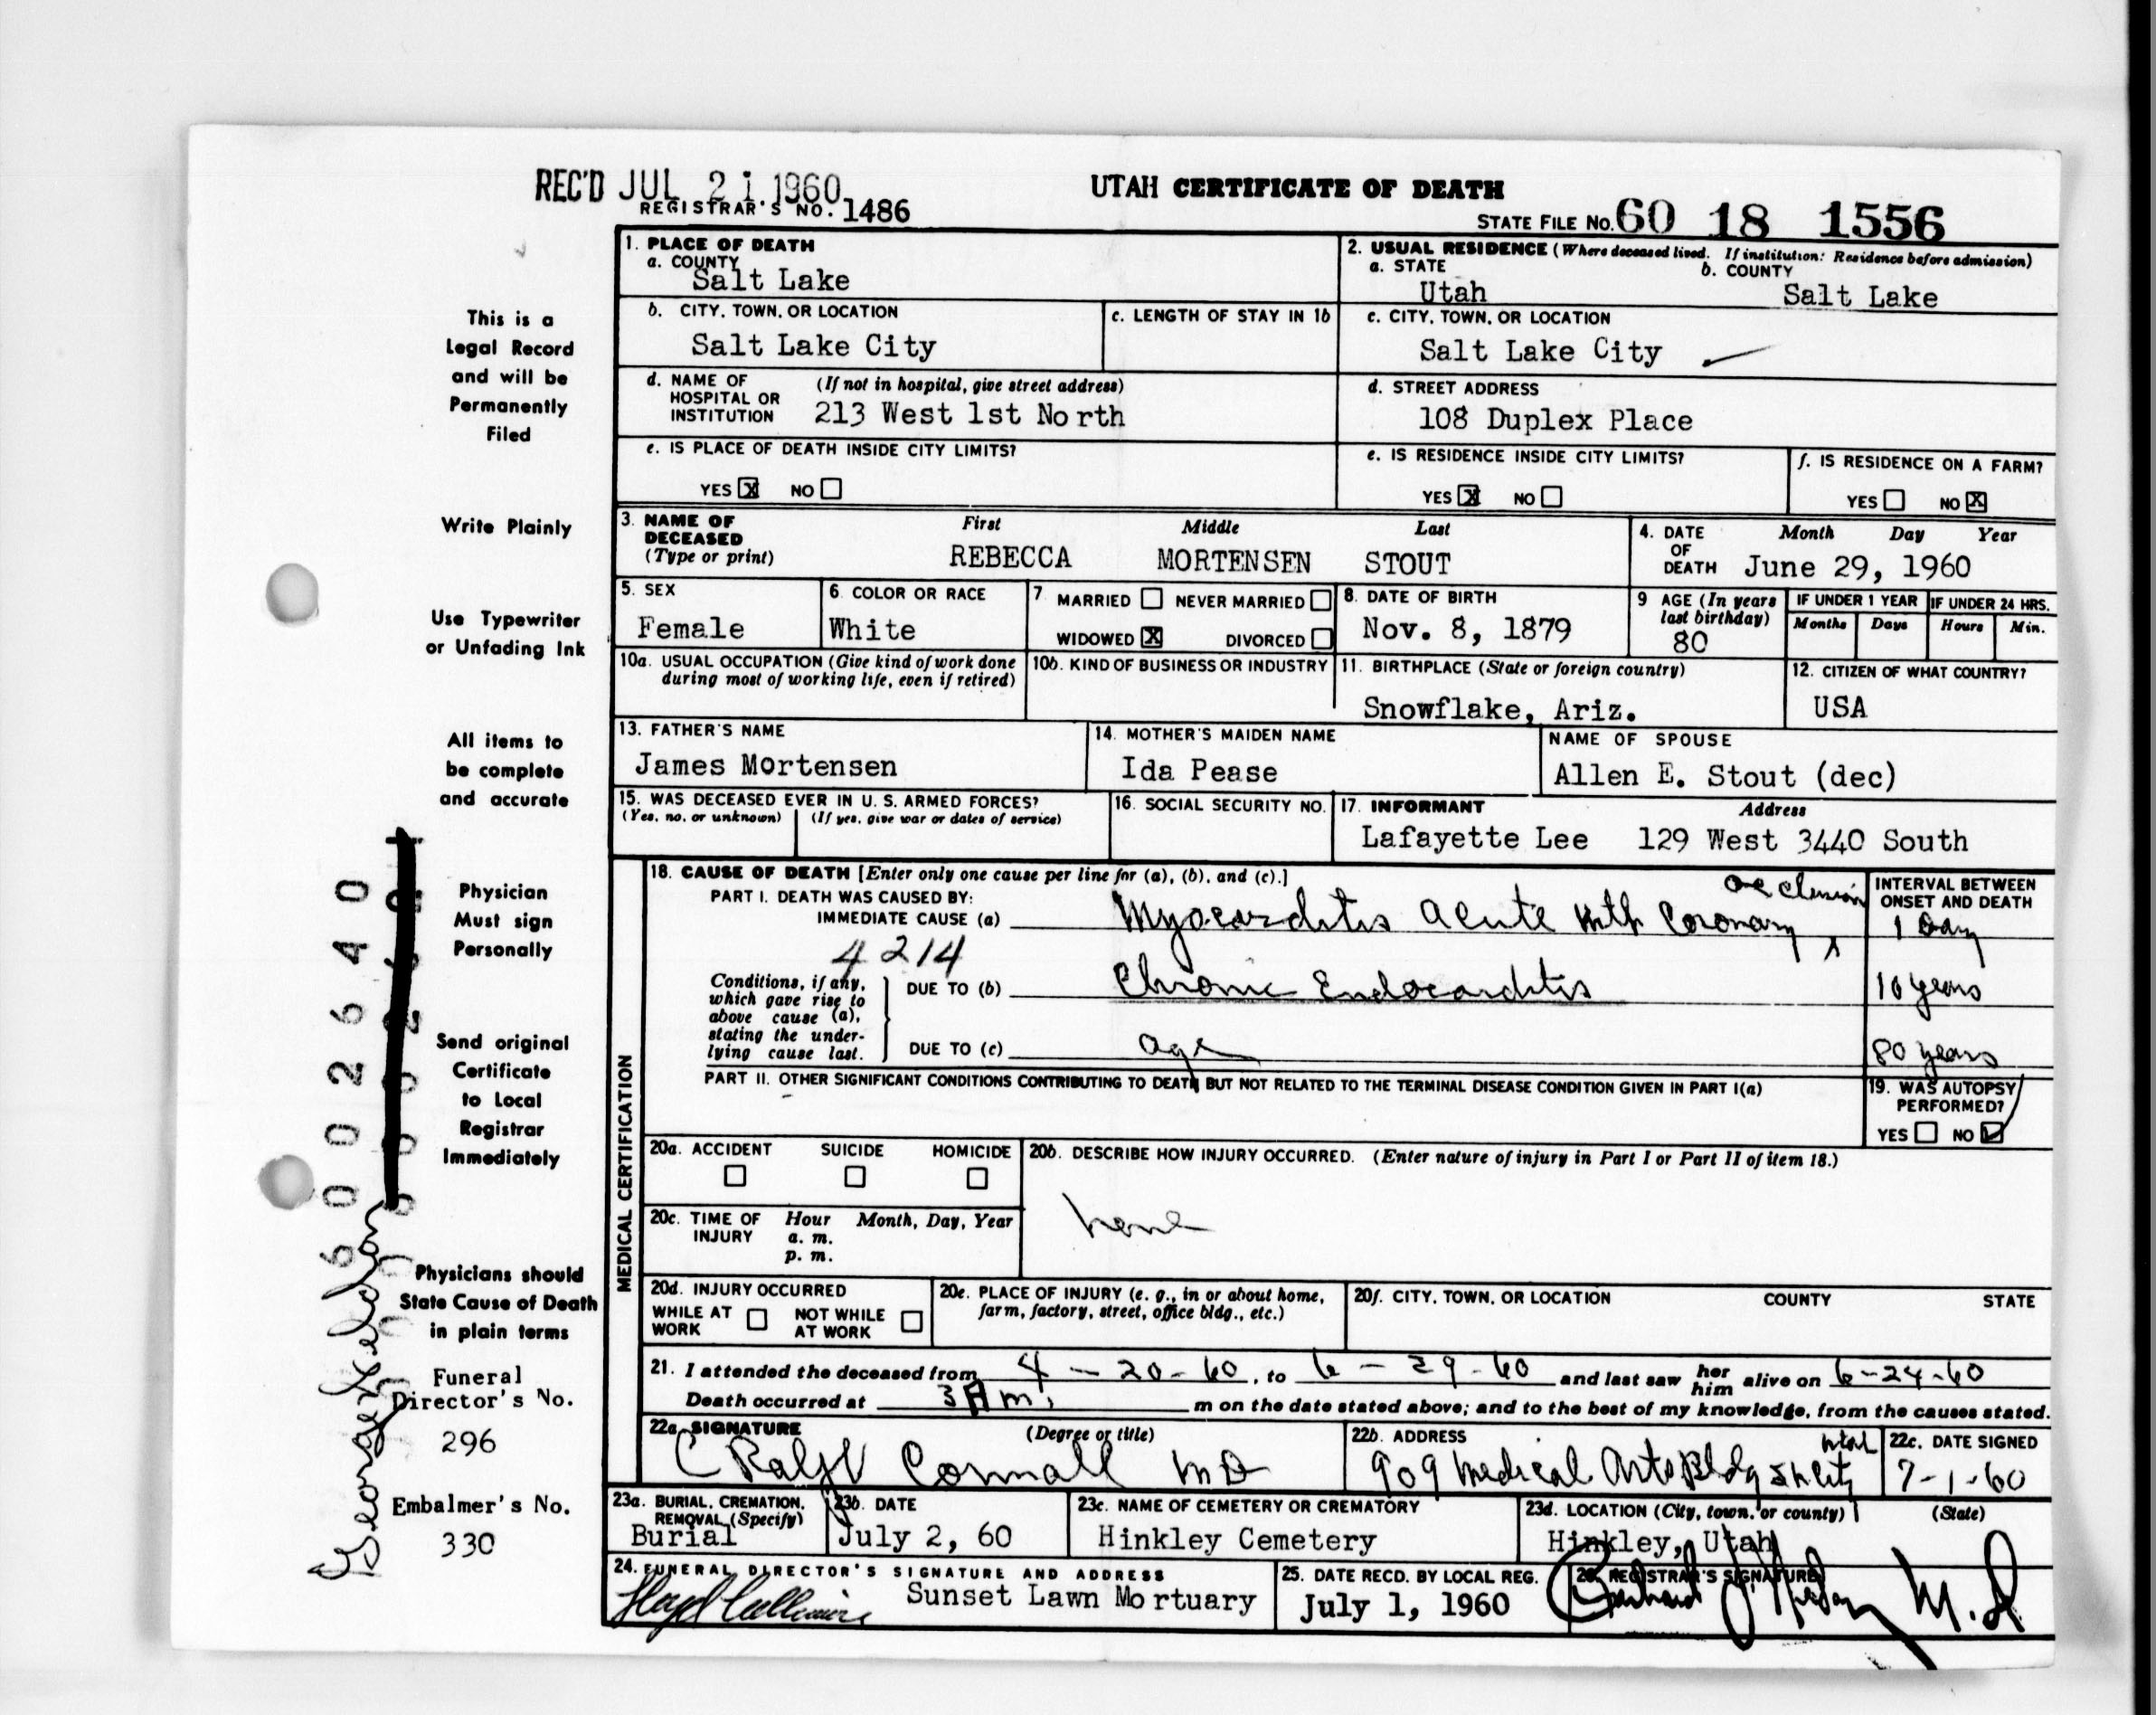 REC'D JUL 21 1960
UTAH CERTIFICATE OF DEATH
REGISTRAR'S NO. 1486
STATE FILE NO. 60 18 1556
This is a
Legal Record
and will be
Permanently
Filed
Write Plainly
Use Typewriter
or Unfading Ink
All items to
be complete
and accurate
Physician
Must sign
Personally
Send original
Certificate
to Local
Registrar
Immediately
Physicians should
State Cause of Death
in plain terms
Funeral
Director's No.
296
Embalmer's No.
330
60 02640
1. PLACE OF DEATH
a. COUNTY
Salt Lake
2. USUAL RESIDENCE (Where deceased lived. If institution: Residence before admission)
a. STATE b. COUNTY
Utah Salt Lake
b. CITY, TOWN, OR LOCATION
Salt Lake City
c. LENGTH OF STAY IN 1b
c. CITY, TOWN, OR LOCATION
Salt Lake City
d. NAME OF HOSPITAL OR INSTITUTION (If not in hospital, give street address)
213 West 1st North
d. STREET ADDRESS
108 Duplex Place
e. IS PLACE OF DEATH INSIDE CITY LIMITS?
YES X NO
e. IS RESIDENCE INSIDE CITY LIMITS?
YES X NO
f. IS RESIDENCE ON A FARM?
YES NO X
3. NAME OF DECEASED (Type or print) First Middle Last
REBECCA MORTENSEN STOUT
4. DATE OF DEATH Month Day Year
June 29, 1960
5. SEX
Female
6. COLOR OR RACE
White
7. MARRIED NEVER MARRIED
WIDOWED X DIVORCED
8. DATE OF BIRTH
Nov. 8, 1879
9 AGE (In years last birthday)
80
IF UNDER 1 YEAR
Months Days
IF UNDER 24 HRS.
Hours Min.
10a. USUAL OCCUPATION (Give kind of work done during most of working life, even if retired)
10b. KIND OF BUSINESS OR INDUSTRY
11. BIRTHPLACE (State or foreign country)
Snowflake, Ariz.
12. CITIZEN OF WHAT COUNTRY?
USA
13. FATHER'S NAME
James Mortensen
14. MOTHER'S MAIDEN NAME
Ida Pease
NAME OF SPOUSE
Allen E. Stout (dec)
15. WAS DECEASED EVER IN U. S. ARMED FORCES?
(Yes, no, or unknown) (If yes, give war or dates of service)
16. SOCIAL SECURITY NO.
17. INFORMANT Address
Lafayette Lee 129 West 3440 South
MEDICAL CERTIFICATION
18. CAUSE OF DEATH [Enter only one cause per line for (a), (b), and (c).]
PART I. DEATH WAS CAUSED BY:
IMMEDIATE CAUSE (a) Myocarditis acute with Coronary occlusion
INTERVAL BETWEEN ONSET AND DEATH
1 Day
4214
Conditions, if any, which gave rise to above cause (a), stating the underlying cause last.
DUE TO (b) Chronic Endocarditis
10 years
DUE TO (c) age
80 years
PART II. OTHER SIGNIFICANT CONDITIONS CONTRIBUTING TO DEATH BUT NOT RELATED TO THE TERMINAL DISEASE CONDITION GIVEN IN PART I(a)
19. WAS AUTOPSY PERFORMED?
YES NO
20a. ACCIDENT SUICIDE HOMICIDE
20b. DESCRIBE HOW INJURY OCCURRED. (Enter nature of injury in Part I or Part II of item 18.)
none
20c. TIME OF INJURY Hour Month, Day, Year
a. m.
p. m.
20d. INJURY OCCURRED
WHILE AT WORK NOT WHILE AT WORK
20e. PLACE OF INJURY (e. g., in or about home, farm, factory, street, office bldg., etc.)
20f. CITY, TOWN, OR LOCATION COUNTY STATE
21. I attended the deceased from 4-20-60, to 6-29-60 and last saw her him alive on 6-24-60
Death occurred at 3 Am. m on the date stated above; and to the best of my knowledge, from the causes stated.
22a. SIGNATURE (Degree or title)
C Ralph Cornwall MD
22b. ADDRESS
909 Medical Arts Bldg
22c. DATE SIGNED
7-1-60
23a. BURIAL, CREMATION, REMOVAL (Specify)
Burial
23b. DATE
July 2, 60
23c. NAME OF CEMETERY OR CREMATORY
Hinkley Cemetery
23d. LOCATION (City, town, or county) (State)
Hinkley, Utah
24. FUNERAL DIRECTOR'S SIGNATURE AND ADDRESS
Sunset Lawn Mortuary
25. DATE RECD. BY LOCAL REG.
July 1, 1960
26. REGISTRAR'S SIGNATURE
M.D